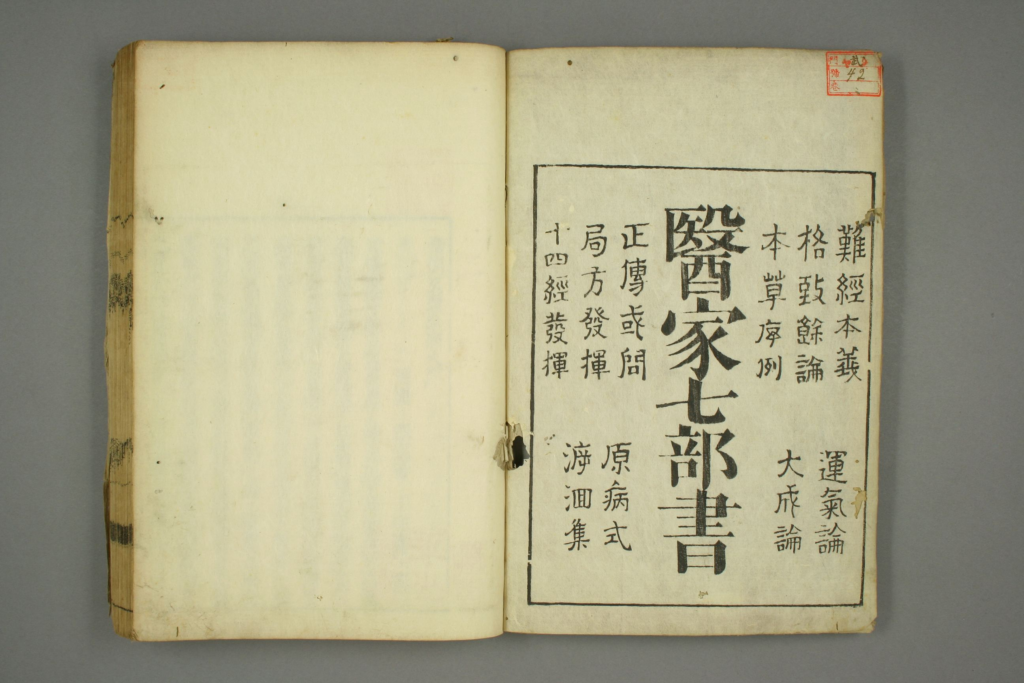 難經本義
格致餘論
本草序例
運氣論
大成論
醫家七部書
正傳或問
局方發揮
十四經發揮
原病式
泝洄集
42